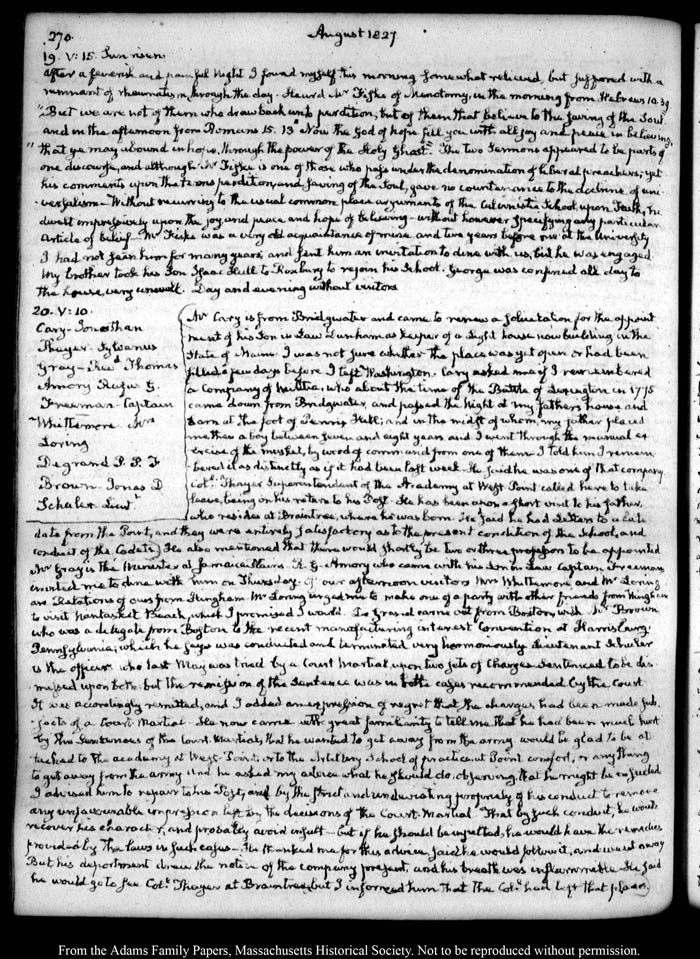 270.
August 1827
19. V:15. Sun risen
after a feverish and painful Night I found myself this morning somewhat relieved, but suffered with a
remnant of rheumatism, through the day. Heard Mr Fiske of Menotomy, in the morning from Hebrews 10.39
"But we are not of them who draw back unto perdition; but of them that believe to the saving of the Soul.
and in the afternoon from Romans 15. 13 "Now the God of hope fill you with all joy and peace in believing,
"that ye may abound in hope, through the power of the Holy Ghost." The two Sermons appeared to be parts of
one discourse, and although Mr Fiske is one of those who pass under the denomination of liberal preachers, yet
his comments upon the terms perdition, and saving of the Soul, gave no countenance to the doctrine of uni-
versalism. Without recurring to the usual common place arguments of the Calvinistic School upon Faith, he
dwelt impressively upon the joy and peace and hope of believing without however specifying any particular
Article of belief. Mr Fiske was a very old acquaintance of mine and two years before me at the University
I had not seen him for many years, and sent him an invitation to dine with us, but he was engaged.
My brother took his Son Isaac Hull to Roxbury to rejoin his School. George was confined all day to
the house, very unwell. Day and evening without visitors
20. V:10.
Cary Jonathan
Thayer Sylvanus
Gray Thomas
Amory Rufus G.
Freeman Captain
Whittemore Mrs
Loring
Degrand P. P. F
Brown Jonas D
Schuler Lieut.
Mr Cary is from Bridgwater and came to renew a solicitation for the appoint
ment of his Son in Law Dunham as keeper of a Light house now building in the
State of Maine. I was not sure whether the place was yet open or had been
filled a few days before I left Washington. Cary asked me if I remembered
a Company of militia, who about the time of the Battle of Lexington in 1775
came down from Bridgwater, and passed the Night at my fathers house and
barn at the foot of Penns Hill; and in the midst of whom, my father placed
me, then a boy between seven and eight years and I went through the manual ex
ercise of the musket, by word of command from one of them. I told him I remem
bered it as distinctly as if it had been last week. He said he was one of that company
Coll. Thayer Superintendent of the Academy at West Point called here to take
leave, being on his return to his Post. He has been upon a short visit to his father,
who resides at Braintree, where he was born. He said he had Letters to a late
date from the Point, and they were entirely satisfactory as to the present condition of the School, and
conduct of the Cadets. He also mentioned that there would shortly be two or three professors to be appointed
Mr Gray is the Minister at Jamaica Plains. R. G. Amory who came with his Son in Law Captain Freeman
invited me to dine with him on Thursday. Of our afternoon visitors Mrs Whittemore and Mr Loring
are Relations of ours from Hingham. Mr Loring urged me to make one of a party with other friends from Hingham
to visit Nantasket Beach, which I promised I would. De Grand came out from Boston, with Mr Brown
who was a delegate from Boston to the recent manufacturing interest Convention at Harrisburg,
Pennsylvania; which he says was conducted and terminated very harmoniously. Lieutenant Schuler
is the officer who last May was tried by a Court Martial upon two sets of Charges Sentenced to be dis-
missed upon both but the remission of the Sentence was in both cases recommended by the Court.
It was accordingly remitted, and I added an expression of regret that the charges had been made sub-
jects of a Court Martial. He now came with great familiarity to tell me that he had been much hurt
by the Sentences of the Court Martial, that he wanted to get away from the army would be glad to be at
tached to the academy at West-Point, or to the Artillery School of practice at Point comfort, or any thing
to get away from the army And he asked my advice what he should do, observing that he might be insulted
I advised him to repair to his Post, and by the strict and undeviating propriety of his conduct to remove
any unfavourable impression left by the decisions of the Court-Martial. That by such conduct, he would
recover his character, and probably avoid insult but if he should be insulted, he would have the remedies
provided by the laws in such cases. He thanked me for this advice, said he would follow it, and went away
But his deportment drew the notice of the company present, and his breath was inflammable. He said
he would go to see Coll. Thayer at Braintree, but I informed him that the Coll. had left that place.
From the Adams Family Papers, Massachusetts Historical Society. Not to be reproduced without permission.